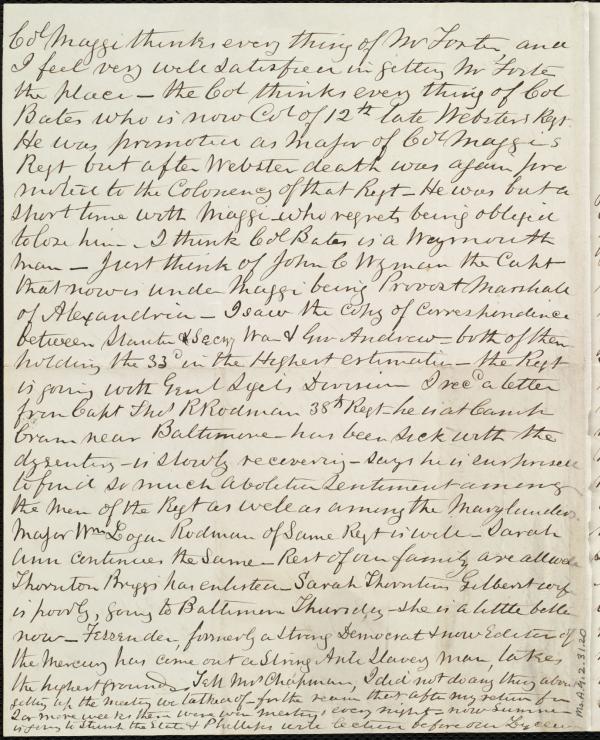 Col Maggi thinks every thing of Mr Foster and
I feel very well satisfied in getting Mr Foster
the place – the Col thinks every thing of Col
Bates who is now Col of 12th late Websters Regt
He was promoted as Major of Col Maggis
Regt but after Webster death was again pro
moted to the Colonency of that Regt – He was but a
short time with Maggi – who regrets being obliged
to lose him – I think Col Bates is a Weymouth
man – Just think of John C Wyman the Capt
that now is under Maggi being Provost Marshall
of Alexandria – I saw the copy of correspondence
between Stanton & Secry War & Gov Andrew – both of them
holding the 33d in the Highest estimation – the Regt
is going with Genl Sigels Division I recd a letter
from Capt Thos R Rodman 38th Regt – he is at Camp
near Baltimore – has been sick with the
dysentery – is slowly recovering – says he is surprised
to find so much abolition sentiment among
the men of the Regt as well as among the Marylanders
Major Wm Logan Rodman of Same Regt is well – Sarah
Ann continues the Same – Rest of our family are all well
Thornton Briggs has enlisted – Sarah Thornton Gilbert wife
is poorly, going to Baltimore Thursday – she is a little better
now – Fessenden, formerly a strong Democrat & now Editor of
the Mercury has come out a Strong Anti Slavery man, takes
the highest grounds, Tell Mrs Chapman, I did not do any thing about
getting up the meeting we talked of – for the reason that after my return for
2 or more weeks there were war meetings every night – now Sumner
is going to stump the State & Phillips will lecture before our Lyceum
Ms.A.9.2.31.20